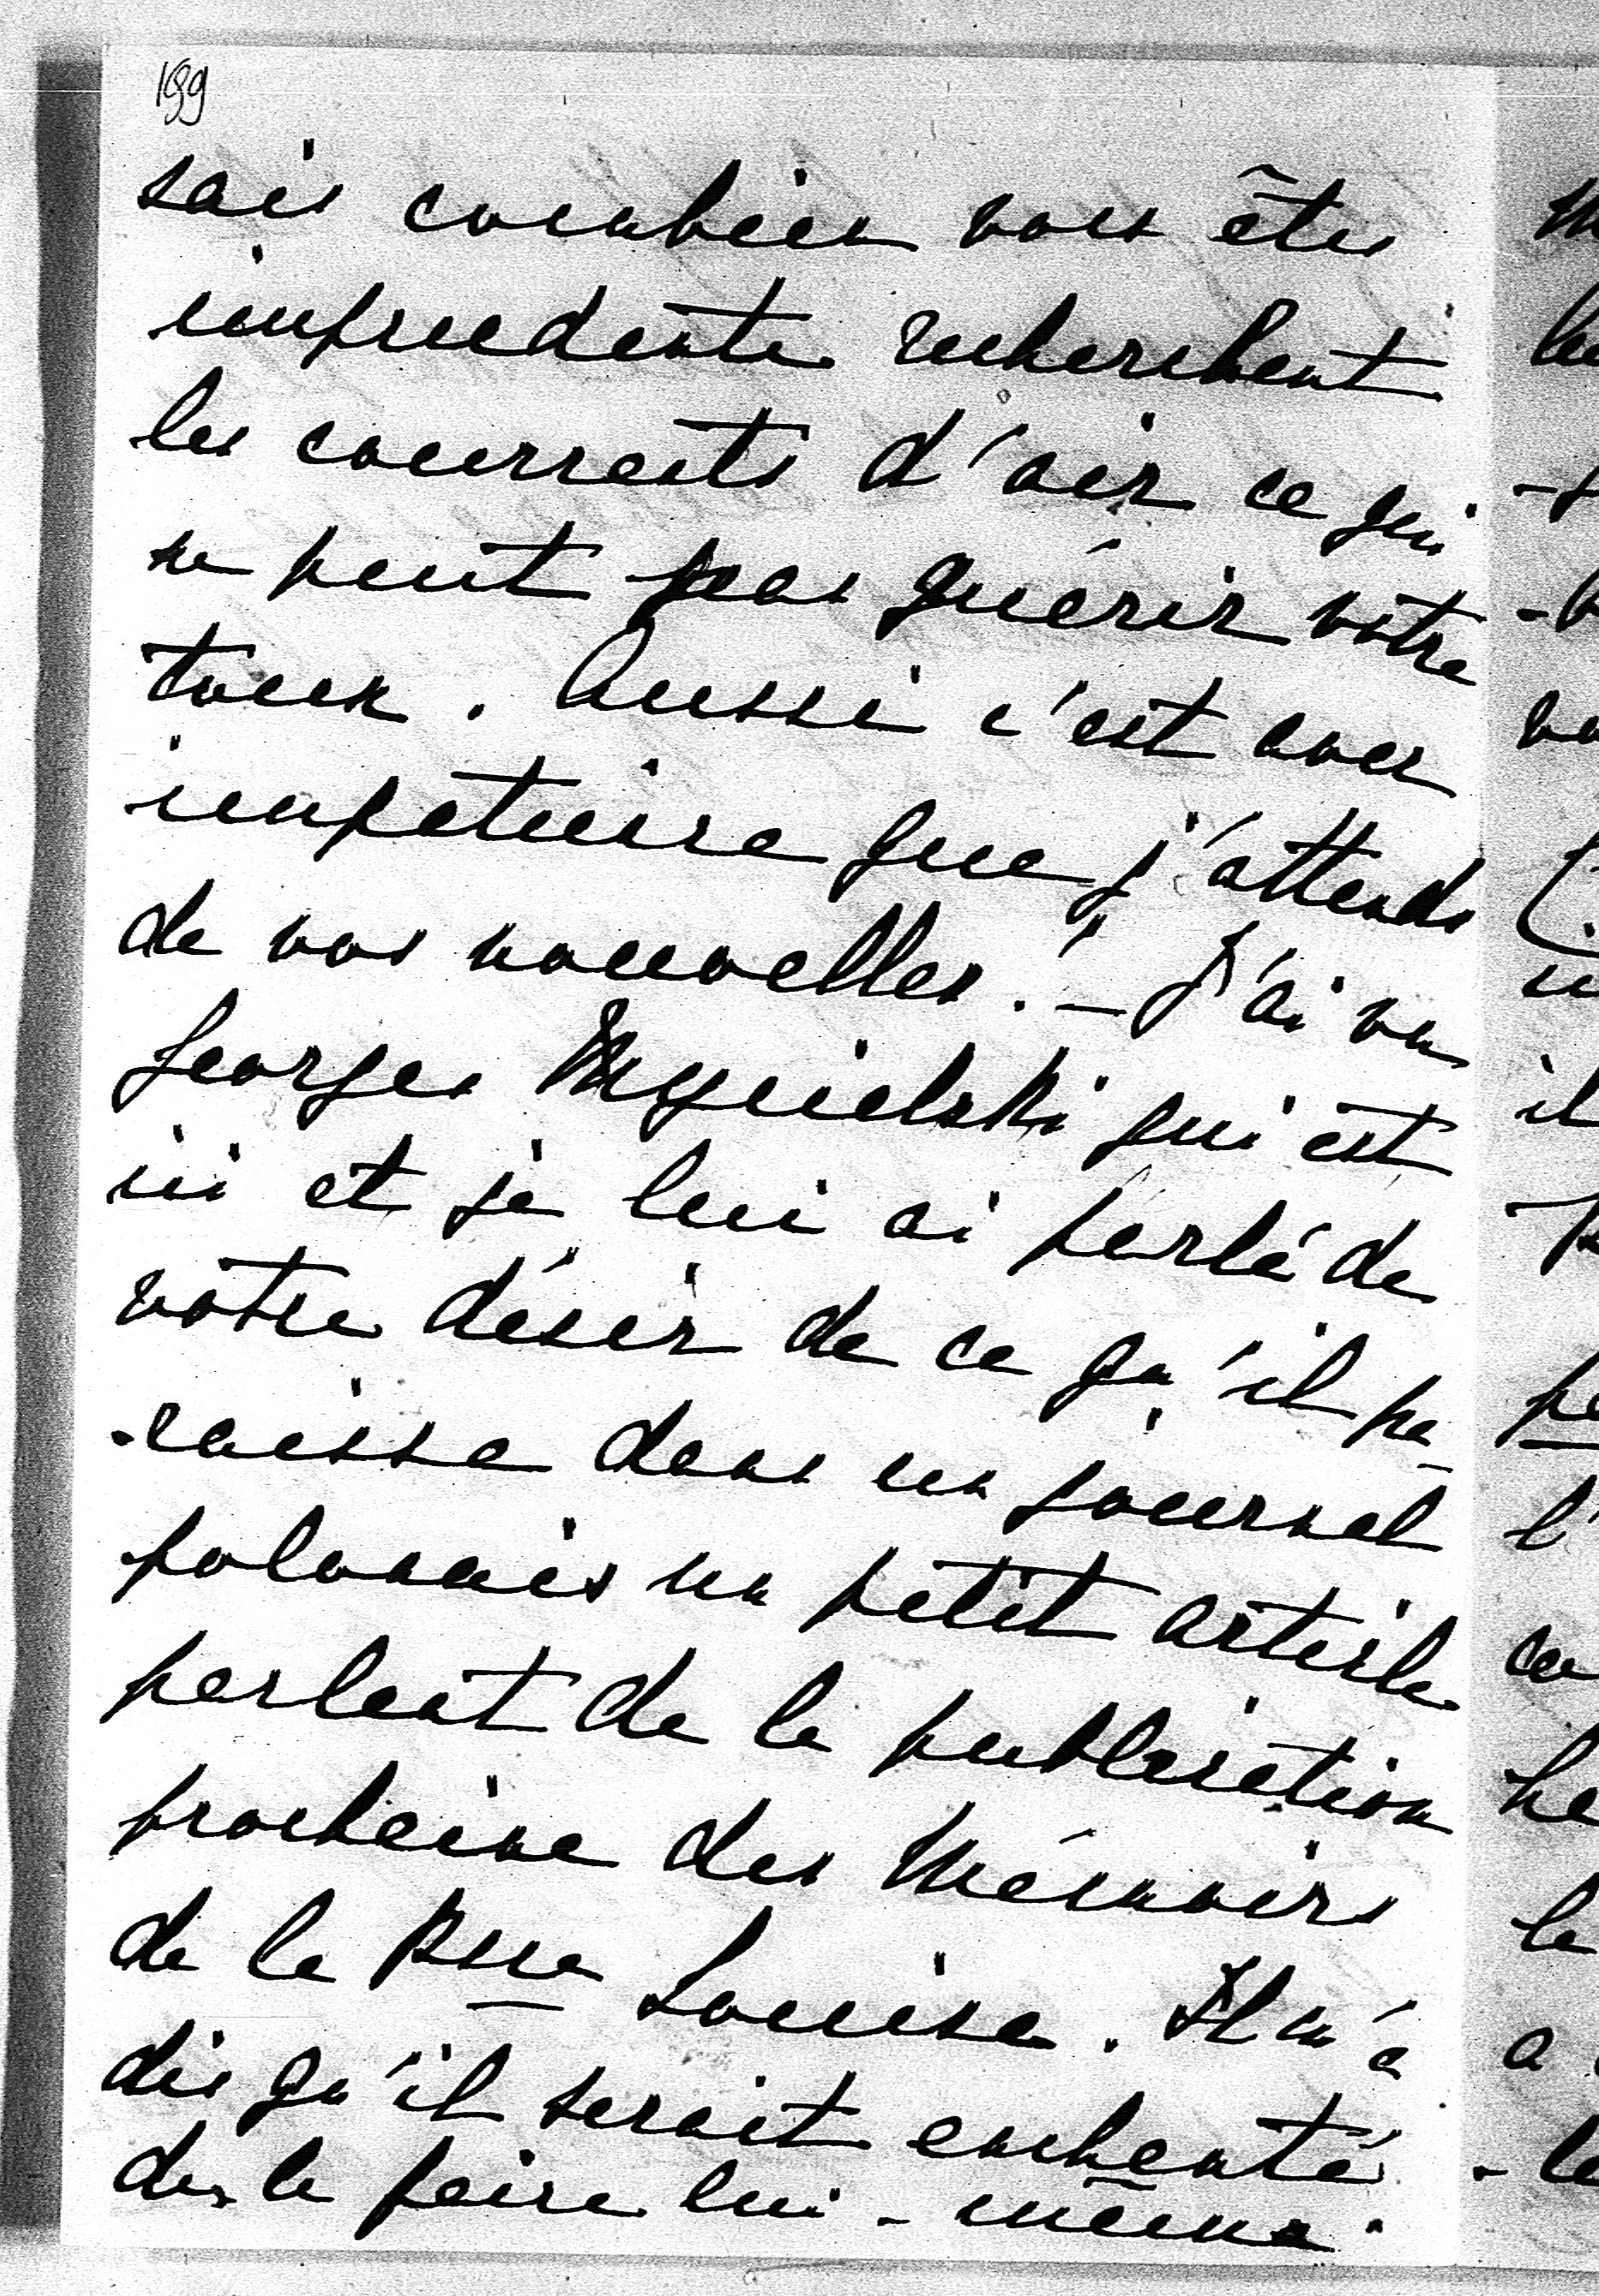 199
sais combien vous êtes
imprudente recherchant
les courrants d'air ce qui
ne peut pas guérir votre
toux. Aussi c'est avec
impatience que j'attends
de vos nouvelles! – J'ai vu
Georges Mycielski qui est
ici et je lui ai parlé de
votre désir de ce qu'il pa-
-raisse dans un journal
polonais un petit article
parlant de la publication
prochaine des Mémoires
de la Psse Louise. Il m'a
dis qu'il serait enchanté
de le faire lui-même.